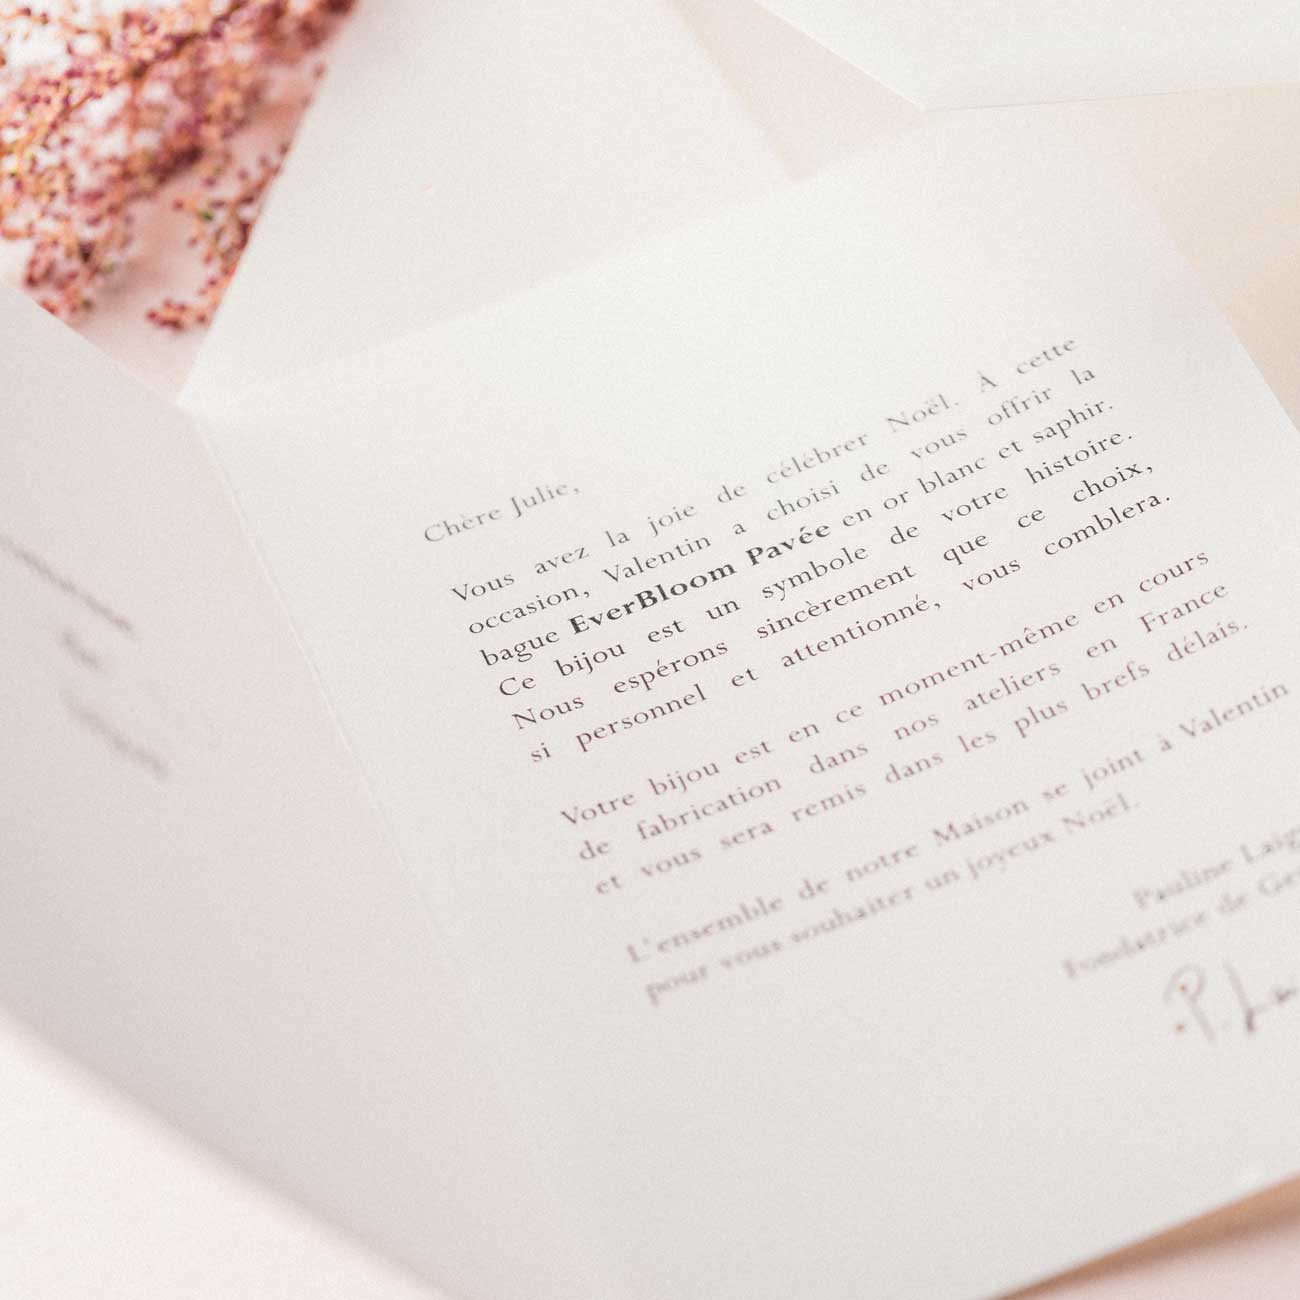 Chère Julie,
Vous avez la joie de célébrer Noël. À cette
occasion, Valentin a choisi de vous offrir la
bague EverBloom Pavée en or blanc et saphir.
Ce bijou est un symbole de votre histoire.
Nous espérons sincèrement que ce choix,
si personnel et attentionné, vous comblera.
Votre bijou est en ce moment-même en cours
de fabrication dans nos ateliers en France
et vous sera remis dans les plus brefs délais.
L'ensemble de notre Maison se joint à Valentin
pour vous souhaiter un joyeux Noël.
Pauline
Fondatrice de